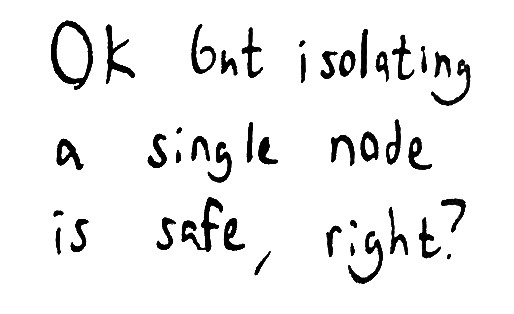 Ok but isolating
a single node
is safe, right?